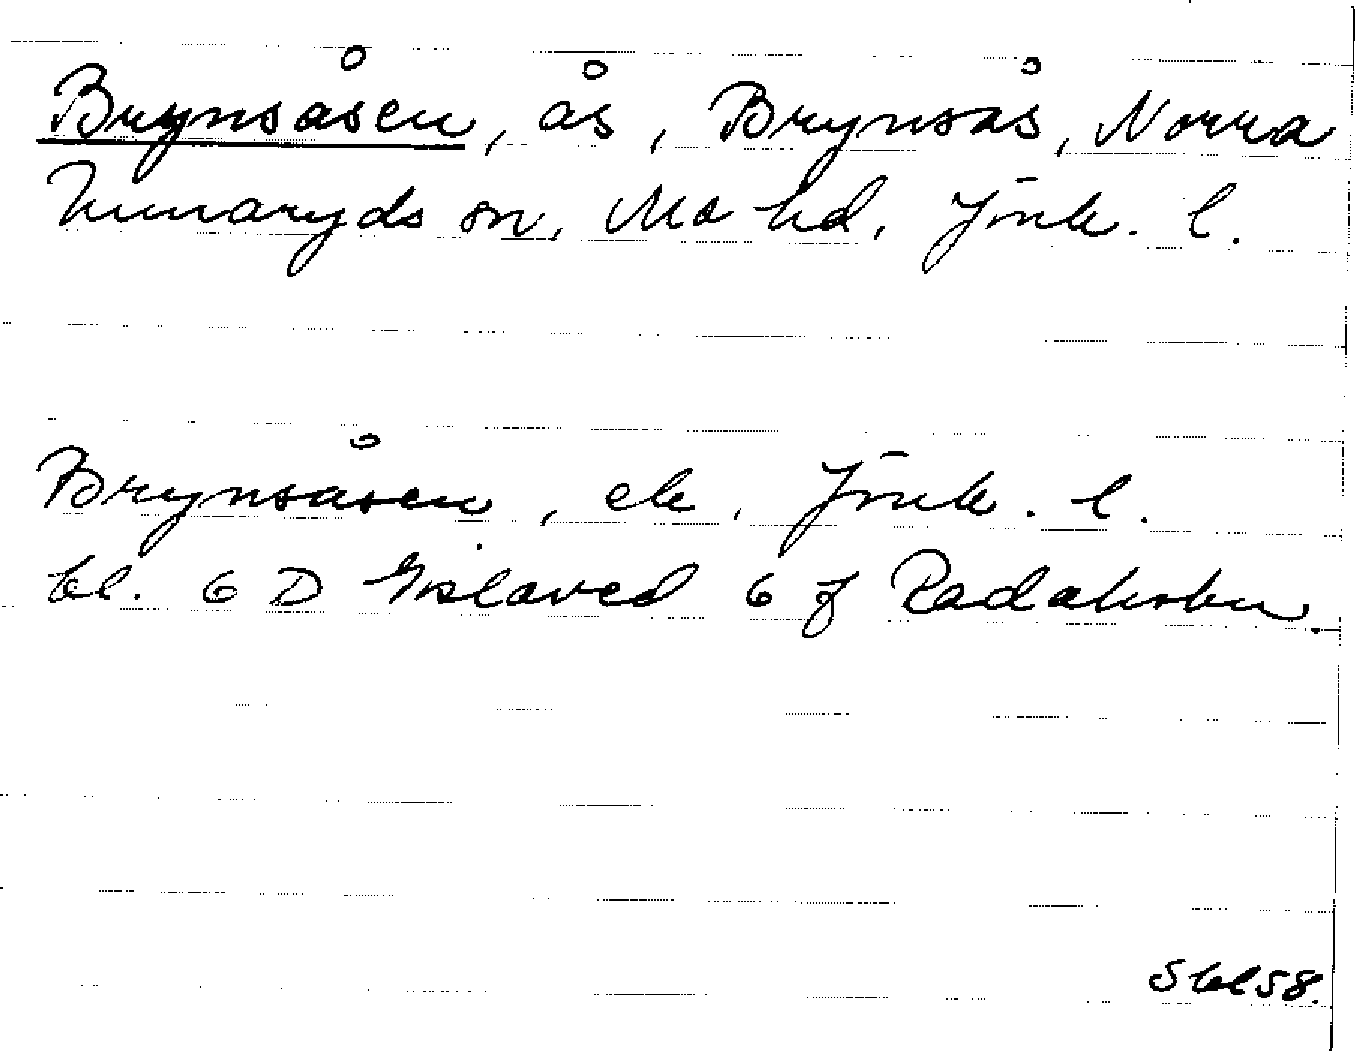 Brynsåsen, ås, Brynsås, Norra
Unnaryds sn, Mo hd, Jönk. l.
Brynsåsen, ek, Jönk. l.
bl. 6 D Gislaved 6 f Radakobu
Sbl 58.